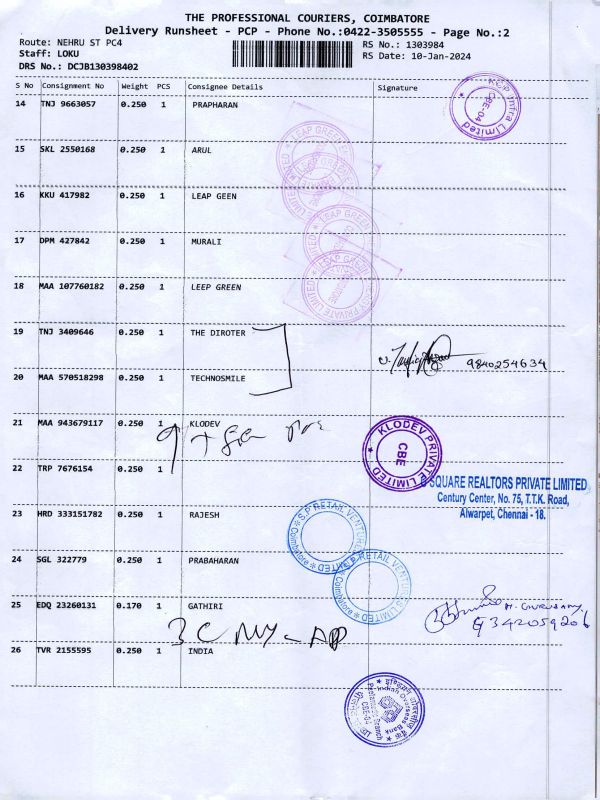 THE PROFESSIONAL COURIERS, COIMBATORE
Delivery Runsheet - PCP - Phone No.:0422-3505555 - Page No.:2
Route: NEHRU ST PC4
RS No.: 1303984
Staff: LOKU
RS Date: 10-Jan-2024
DRS No.: DCJB130398402
S No Consignment No Weight PCS Consignee Details Signature
14 TNJ 9663057 0.250 1 PRAPHARAN
Infra Limited
CBE-04
15 SKL 2550168 0.250 1 ARUL
LEAP GREEN
16 KKU 417982 0.250 1 LEAP GEEN
17 DPM 427842 0.250 1 MURALI
LEAP GREEN
18 MAA 107760182 0.250 1 LEEP GREEN
LEAP GREEN ENERGY PRIVATE LIMITED
19 TNJ 3409646 0.250 1 THE DIROTER
9840254634
20 MAA 570518298 0.250 1 TECHNOSMILE
21 MAA 943679117 0.250 1 KLODEV
KLODEV PRIVATE LIMITED
CBE
22 TRP 7676154 0.250 1
SQUARE REALTORS PRIVATE LIMITED
Century Center, No. 75, T.T.K. Road,
Alwarpet, Chennai - 18.
23 HRD 333151782 0.250 1 RAJESH
S.P RETAIL VENTURES LIMITED * Coimbatore *
24 SGL 322779 0.250 1 PRABAHARAN
S.P RETAIL VENTURES LIMITED * Coimbatore *
25 EDQ 23260131 0.170 1 GATHIRI
26 TVR 2155595 0.250 1 INDIA
Indian Overseas Bank
CBE-04